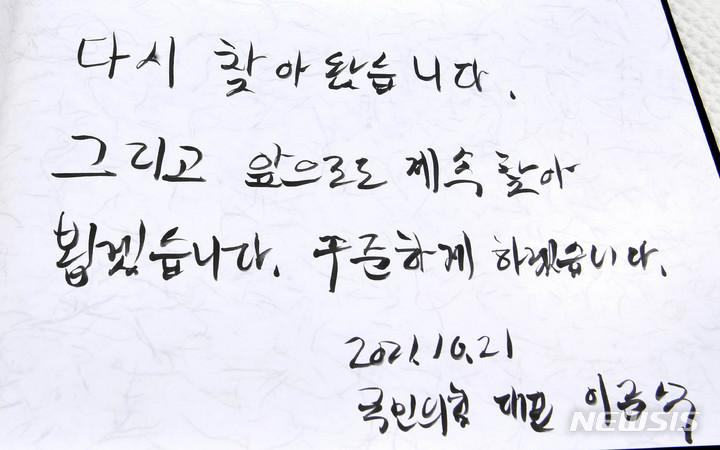 다시 찾아왔습니다.
그리고 앞으로도 계속 찾아
뵙겠습니다. 꾸준하게 하겠습니다.
2021.10.21
국민의힘 대표 이준석
NEWSIS